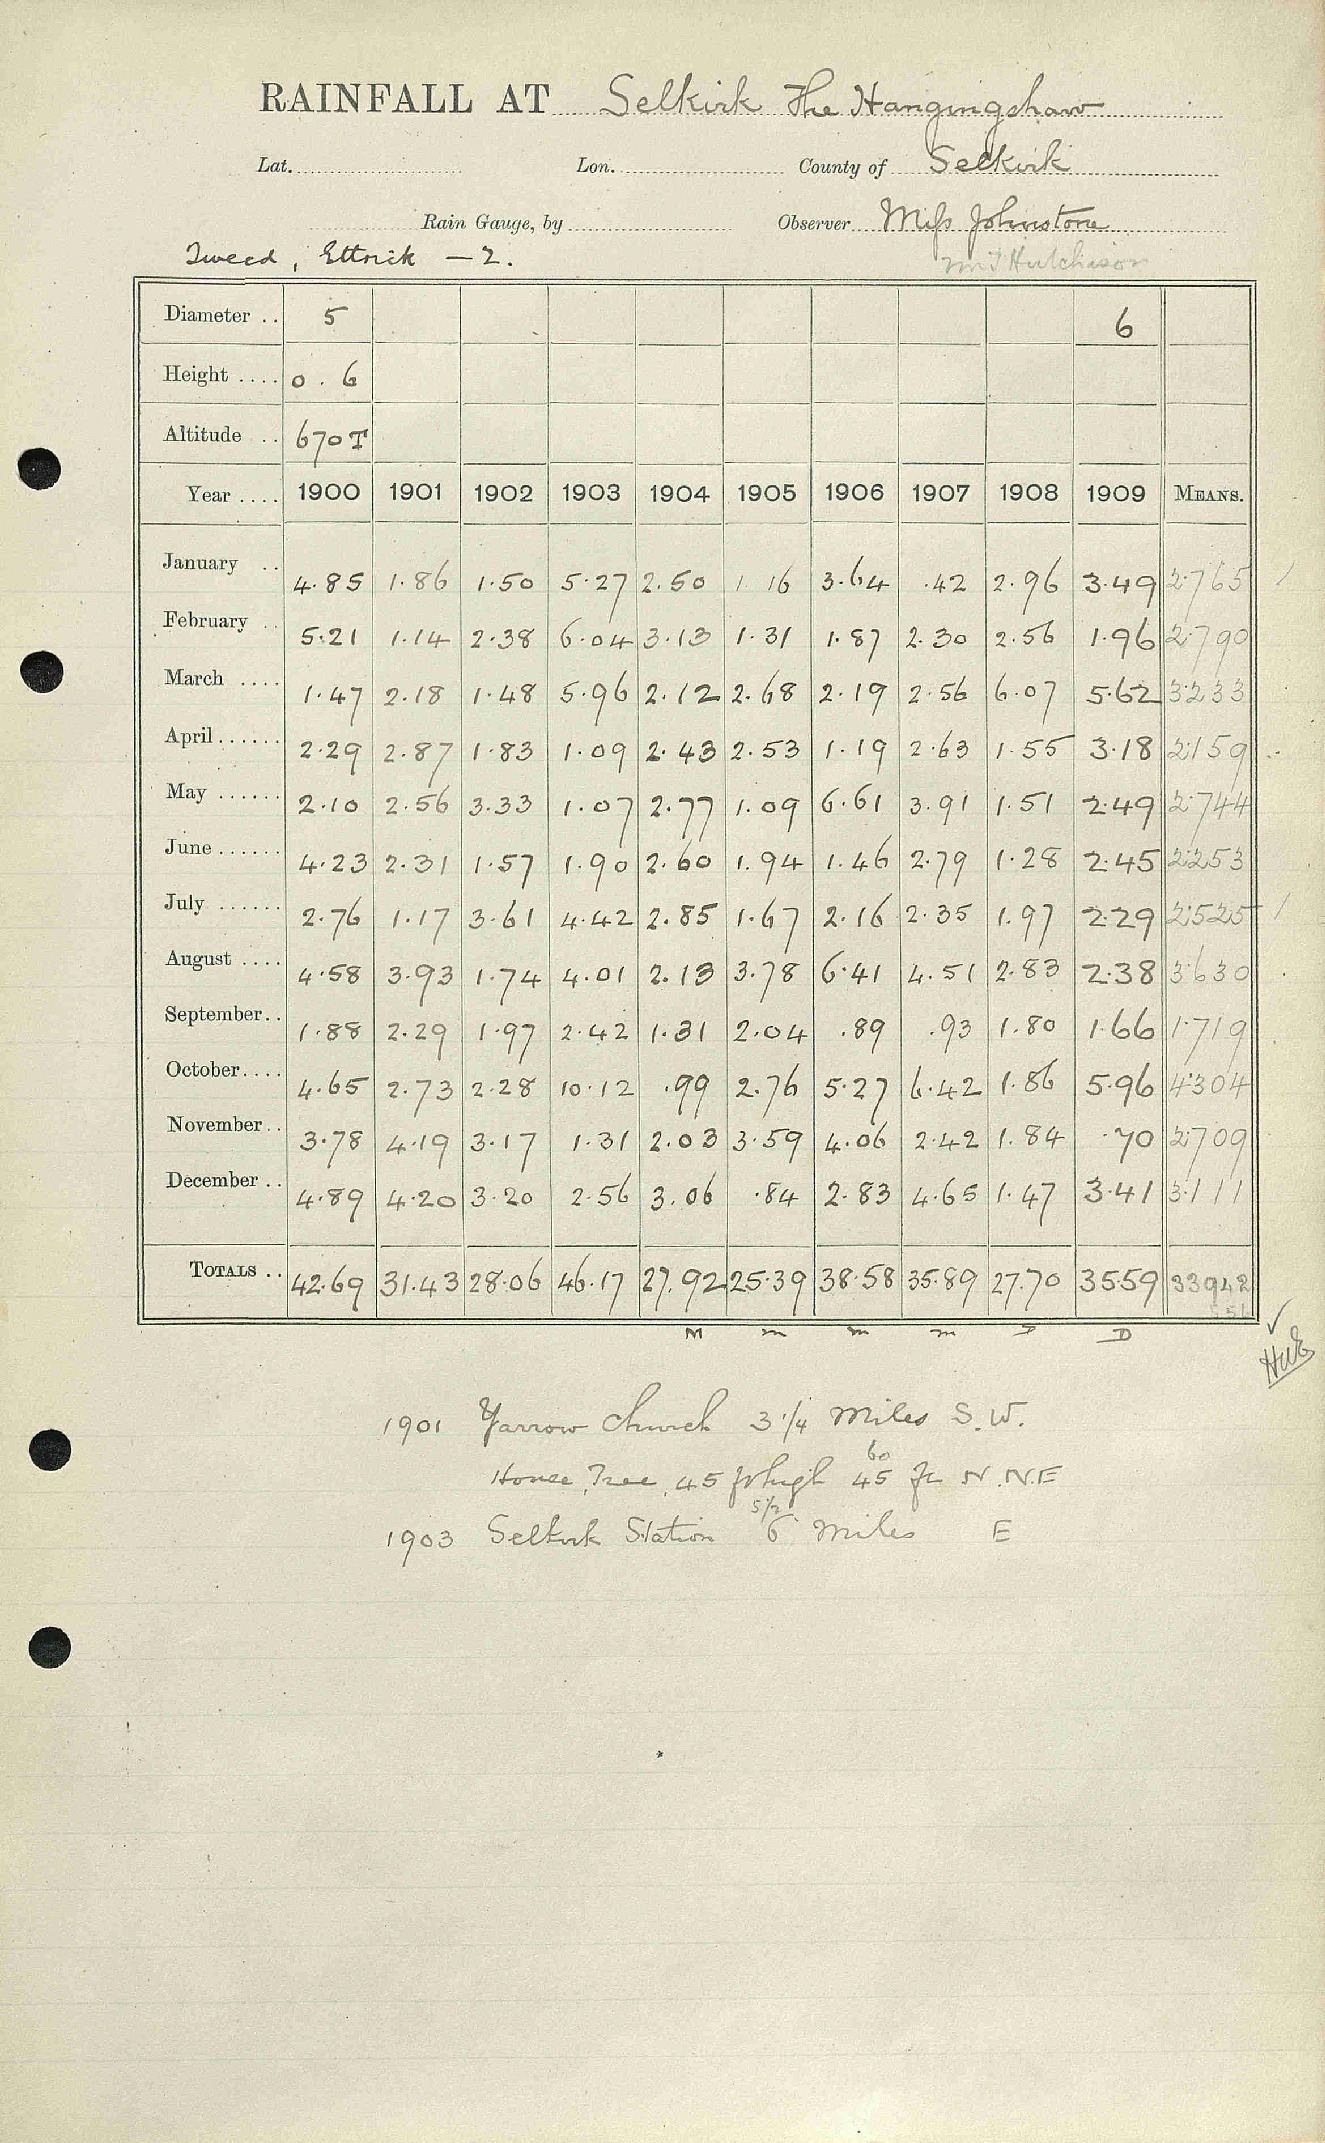 RAINFALL AT Selkirk The Hangingshaw
Lat. Lon. County of Selkirk
Rain Gauge, by Observer Miss Johnstone
Tweed, Ettrick — 2. Hutchison
Diameter .. 5 6
Height .... 0.6
Altitude .. 670 T
Year .... 1900 1901 1902 1903 1904 1905 1906 1907 1908 1909 MEANS.
January .. 4.85 1.86 1.50 5.27 2.50 1.16 3.64 .42 2.96 3.49 2.765
February .. 5.21 1.14 2.38 6.04 3.13 1.31 1.87 2.30 2.56 1.96 2.790
March .... 1.47 2.18 1.48 5.96 2.12 2.68 2.19 2.56 6.07 5.62 3.233
April...... 2.29 2.87 1.83 1.09 2.43 2.53 1.19 2.63 1.55 3.18 2.159
May ...... 2.10 2.56 3.33 1.07 2.77 1.09 6.61 3.91 1.51 2.49 2.744
June...... 4.23 2.31 1.57 1.90 2.60 1.94 1.46 2.79 1.28 2.45 2.253
July ...... 2.76 1.17 3.61 4.42 2.85 1.67 2.16 2.35 1.97 2.29 2.525
August .... 4.58 3.93 1.74 4.01 2.13 3.78 6.41 4.51 2.83 2.38 3.630
September.. 1.88 2.29 1.97 2.42 1.31 2.04 .89 .93 1.80 1.66 1.719
October.... 4.65 2.73 2.28 10.12 .99 2.76 5.27 6.42 1.86 5.96 4.304
November.. 3.78 4.19 3.17 1.31 2.03 3.59 4.06 2.42 1.84 .70 2.709
December .. 4.89 4.20 3.20 2.56 3.06 .84 2.83 4.65 1.47 3.41 3.111
TOTALS .. 42.69 31.43 28.06 46.17 27.92 25.39 38.58 35.89 27.70 35.59 33942
M m m m D
1901 Yarrow Church 3 1/4 Miles S.W.
60
House, Tree, 45 ft high 45 ft N.N.E
5 1/2
1903 Selkirk Station 6 Miles E